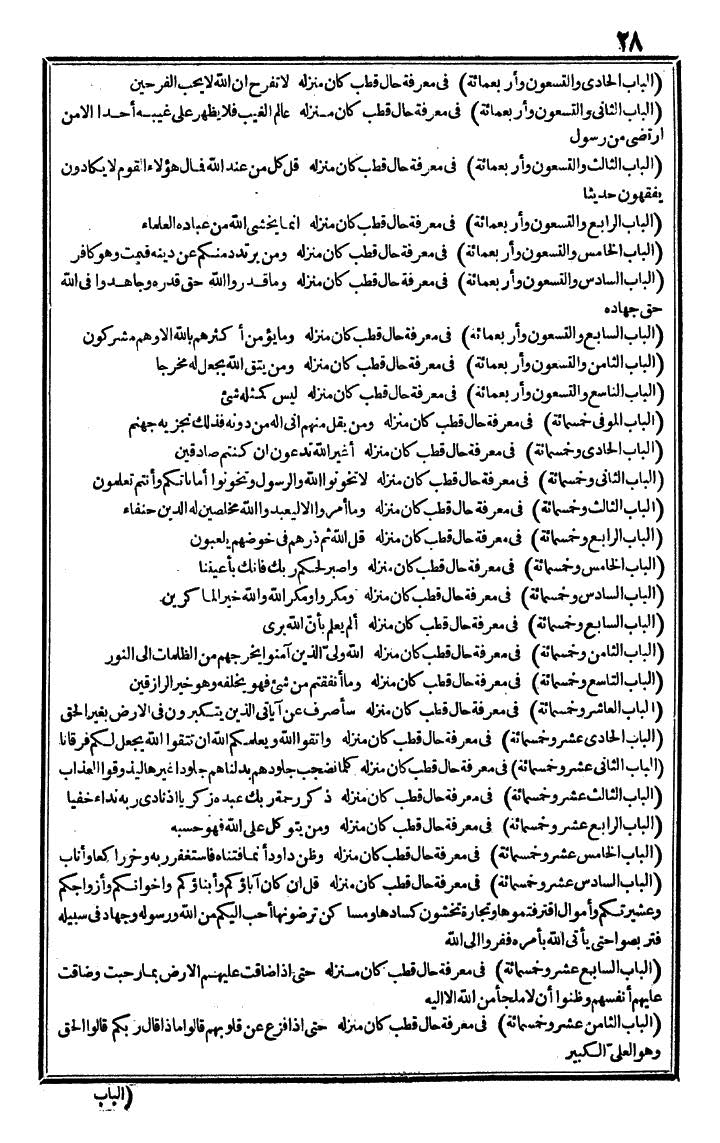 ٢٨
(الباب الحادى والتسعون وأربعمائة) فى معرفة حال قطب كان منزله لا تفرح ان الله لا يحب الفرحين
(الباب الثانى والتسعون وأربعمائة) فى معرفة حال قطب كان منزله عالم الغيب فلا يظهر على غيبه أحدا الا من
ارتضى من رسول
(الباب الثالث والتسعون وأربعمائة) فى معرفة حال قطب كان منزله قل كل من عند الله فمال هؤلاء القوم لا يكادون
يفقهون حديثا
(الباب الرابع والتسعون وأربعمائة) فى معرفة حال قطب كان منزله انما يخشى الله من عباده العلماء
(الباب الخامس والتسعون وأربعمائة) فى معرفة حال قطب كان منزله ومن يرتدد منكم عن دينه فيمت وهو كافر
(الباب السادس والتسعون وأربعمائة) فى معرفة حال قطب كان منزله وما قدروا الله حق قدره وجاهدوا فى الله
حق جهاده
(الباب السابع والتسعون وأربعمائة) فى معرفة حال قطب كان منزله وما يؤمن أكثرهم بالله الا وهم مشركون
(الباب الثامن والتسعون وأربعمائة) فى معرفة حال قطب كان منزله ومن يتق الله يجعل له مخرجا
(الباب التاسع والتسعون وأربعمائة) فى معرفة حال قطب كان منزله ليس كمثله شئ
(الباب الموفى خمسمائة) فى معرفة حال قطب كان منزله ومن يقل منهم انى اله من دونه فذلك نجزيه جهنم
(الباب الحادى وخمسمائة) فى معرفة حال قطب كان منزله أغير الله تدعون ان كنتم صادقين
(الباب الثانى وخمسمائة) فى معرفة حال قطب كان منزله لا تخونوا الله والرسول وتخونوا أماناتكم وأنتم تعلمون
(الباب الثالث وخمسمائة) فى معرفة حال قطب كان منزله وما أمروا الا ليعبدوا الله مخلصين له الدين حنفاء
(الباب الرابع وخمسمائة) فى معرفة حال قطب كان منزله قل الله ثم ذرهم فى خوضهم يلعبون
(الباب الخامس وخمسمائة) فى معرفة حال قطب كان منزله واصبر لحكم ربك فانك بأعيننا
(الباب السادس وخمسمائة) فى معرفة حال قطب كان منزله ومكروا ومكر الله والله خير الماكرين
(الباب السابع وخمسمائة) فى معرفة حال قطب كان منزله ألم يعلم بأنّ الله يرى
(الباب الثامن وخمسمائة) فى معرفة حال قطب كان منزله الله ولىّ الذين آمنوا يخرجهم من الظلمات الى النور
(الباب التاسع وخمسمائة) فى معرفة حال قطب كان منزله وما أنفقتم من شئ فهو يخلفه وهو خير الرازقين
(الباب العاشر وخمسمائة) فى معرفة حال قطب كان منزله سأصرف عن آياتى الذين يتكبرون فى الارض بغير الحق
(الباب الحادى عشر وخمسمائة) فى معرفة حال قطب كان منزله واتقوا الله ويعلمكم الله ان تتقوا الله يجعل لكم فرقانا
(الباب الثانى عشر وخمسمائة) فى معرفة حال قطب كان منزله كلما نضجت جلودهم بدلناهم جلودا غيرها ليذوقوا العذاب
(الباب الثالث عشر وخمسمائة) فى معرفة حال قطب كان منزله ذكر رحمة ربك عبده زكريا اذ نادى ربه نداء خفيا
(الباب الرابع عشر وخمسمائة) فى معرفة حال قطب كان منزله ومن يتوكل على الله فهو حسبه
(الباب الخامس عشر وخمسمائة) فى معرفة حال قطب كان منزله وظن داود أنما فتناه فاستغفر ربه وخر راكعا وأناب
(الباب السادس عشر وخمسمائة) فى معرفة حال قطب كان منزله قل ان كان آباؤكم وأبناؤكم واخوانكم وأزواجكم
وعشيرتكم وأموال اقترفتموها وتجارة تخشون كسادها ومساكن ترضونها أحب اليكم من الله ورسوله وجهاد فى سبيله
فتربصوا حتى يأتى الله بأمره ففروا الى الله
(الباب السابع عشر وخمسمائة) فى معرفة حال قطب كان منزله حتى اذا ضاقت عليهم الارض بما رحبت وضاقت
عليهم أنفسهم وظنوا أن لا ملجأ من الله الا اليه
(الباب الثامن عشر وخمسمائة) فى معرفة حال قطب كان منزله حتى اذا فزع عن قلوبهم قالوا ماذا قال ربكم قالوا الحق
وهو العلىّ الكبير
(الباب